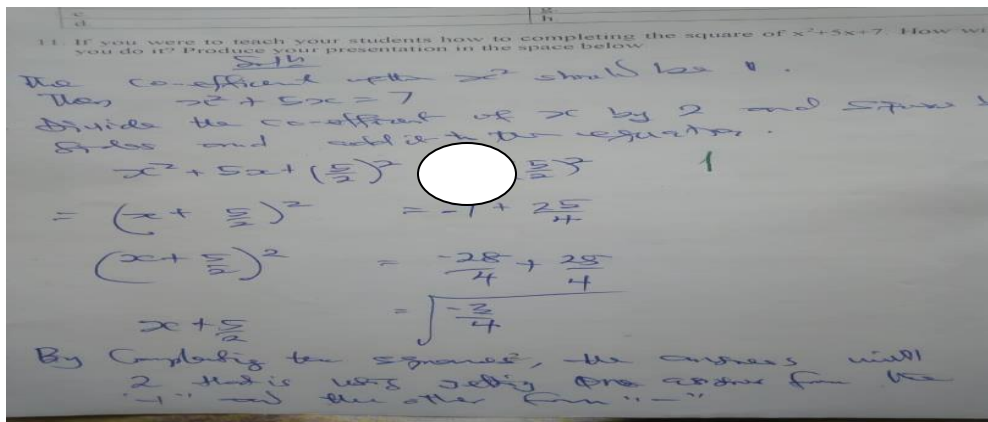 d. h.
11. If you were to teach your students how to completing the square of x²+5x+7. How wi
you do it? Produce your presentation in the space below
Soln
The co-efficient with x² should be 1.
Then x² + 5x = 7
Divide the co-efficient of x by 2 and square
and add it to the equation.
x² + 5x + (5/2)² 5/2)² 1
= (x + 5/2)² = -7 + 25/4
(x + 5/2)² = -28/4 + 25/4
x + 5/2 = √-3/4
By Completing the squares, the answers will
2 that is getting one answer from the
"+" and the other from "-"